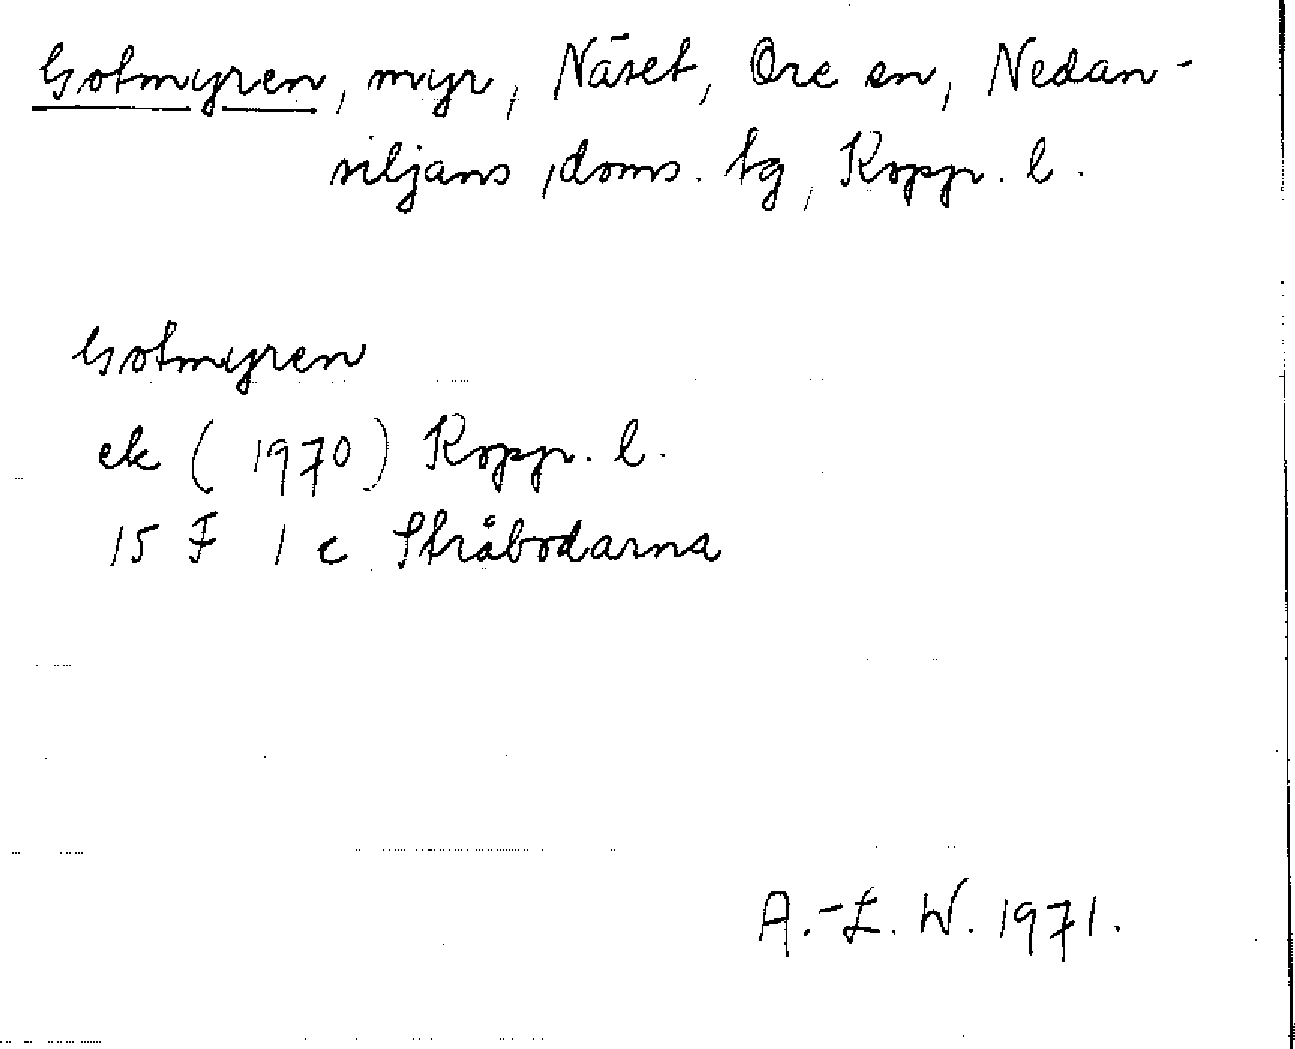 Gotmyren, myr, Näset, Ore sn, Nedan-
siljans, doms. tg, Kopp. l.
Gotmyren
ek (1970) Kopp. l.
15 F 1 c Stråbodarna
A.-L. W. 1971.